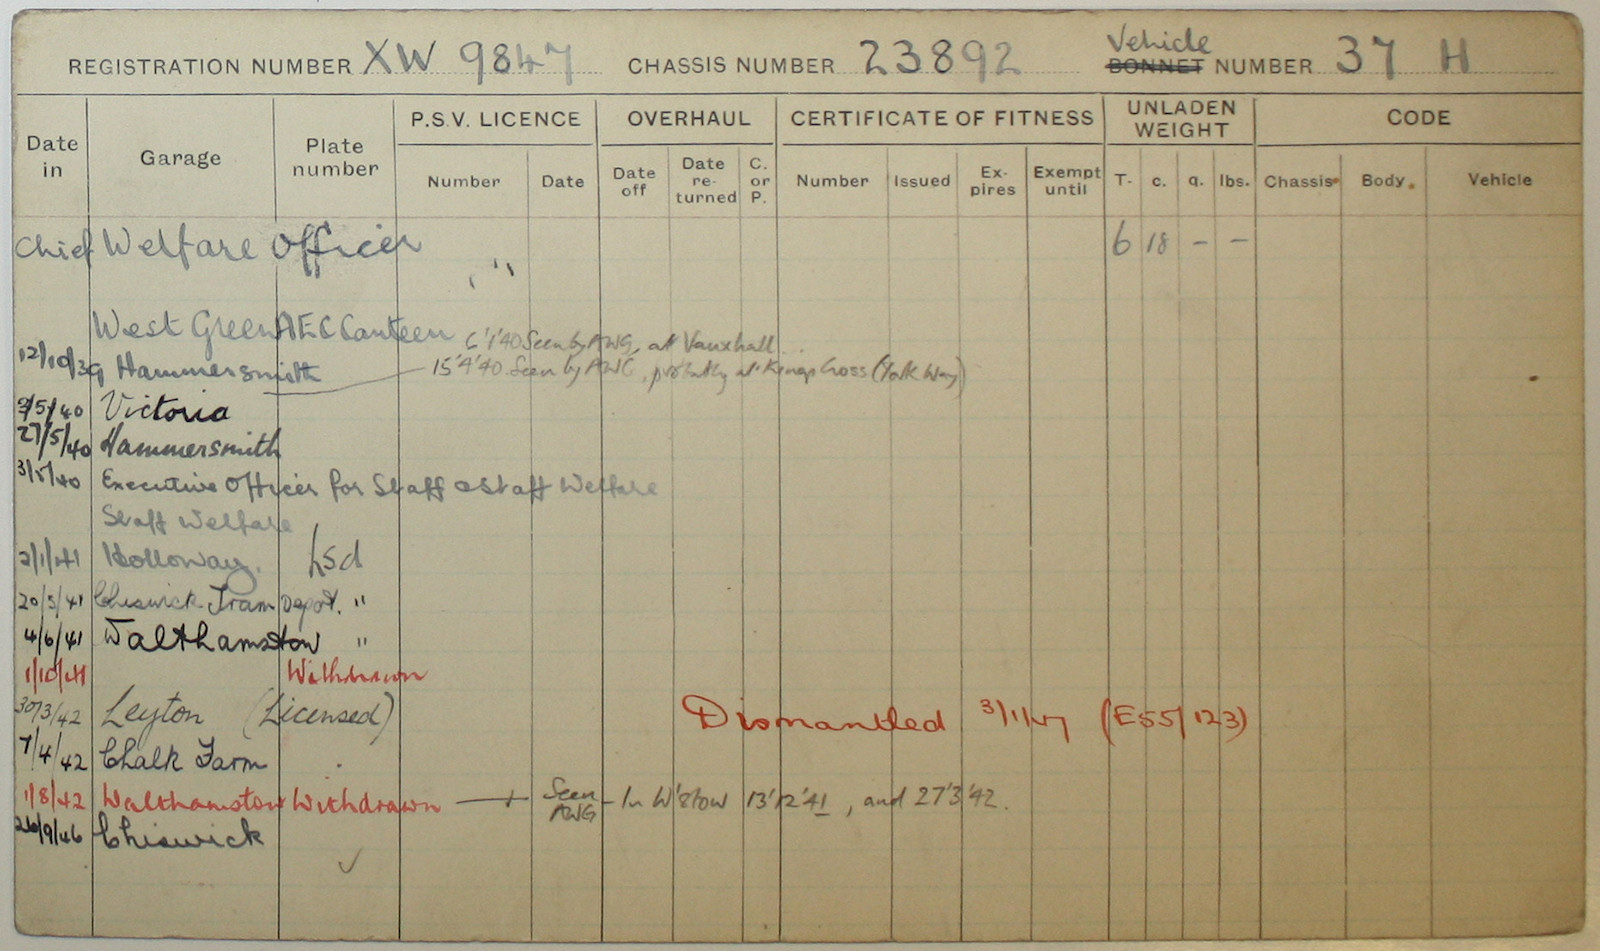 REGISTRATION NUMBER XW 9847 CHASSIS NUMBER 23892 Vehicle BONNET NUMBER 37 H
Date in Garage Plate number P.S.V. LICENCE OVERHAUL CERTIFICATE OF FITNESS UNLADEN WEIGHT CODE
Number Date Date off Date re-turned C. or P. Number Issued Ex-pires Exempt until T. c. q. lbs. Chassis Body. Vehicle
Chief Welfare Officer 6 18 - -
"
West Green AEC Canteen 6'1'40 Seen by AWG, at Vauxhall
12/10/39 Hammersmith 15'4'40. Seen by AWG, probably at Kings Cross (York Way)
9/5/40 Victoria
27/5/40 Hammersmith
3/5/40 Executive Officer for Staff & Staff Welfare
Staff Welfare
2/1/41 Holloway. Lsd
20/5/41 Chiswick Tram Depot. "
4/6/41 Walthamstow "
1/10/41 Withdrawn
30/3/42 Leyton (Licensed) Dismantled 3/1/47 (E55/123)
7/4/42 Chalk Farm
1/8/42 Walthamstow Withdrawn Seen AWG - In W'stow 13'12'41, and 27'3'42.
26/9/46 Chiswick
✓